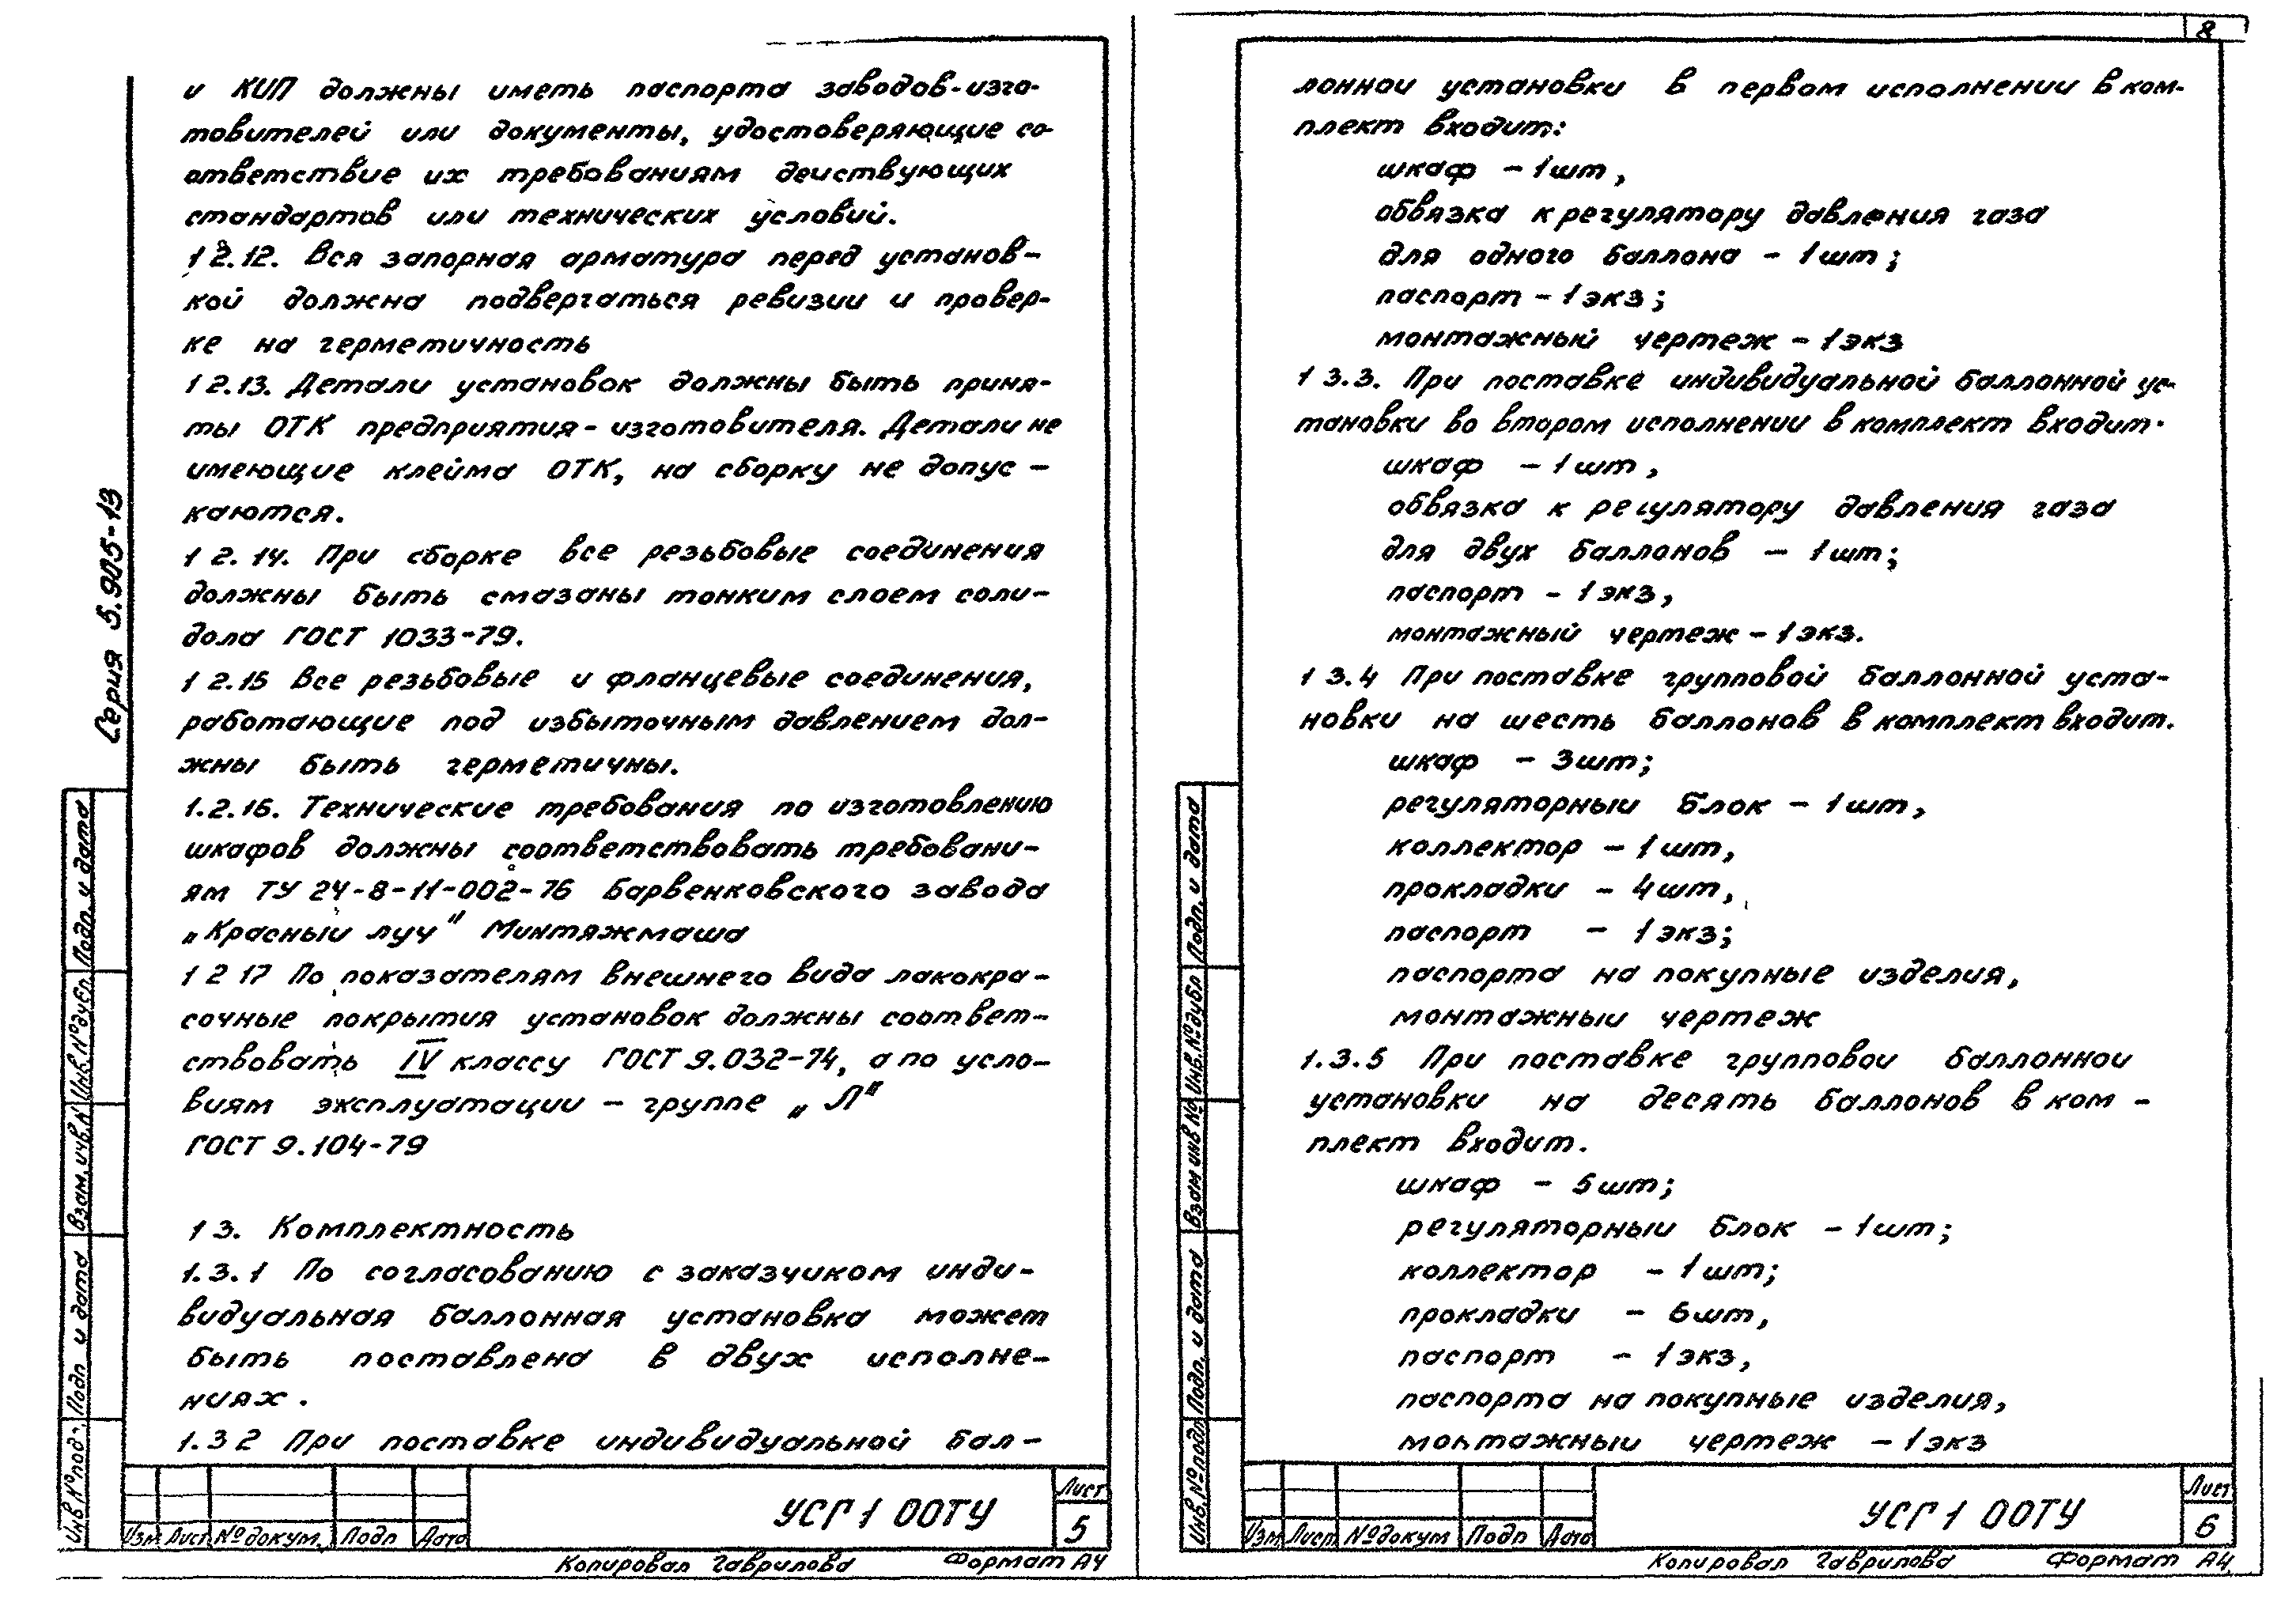 и КИП должны иметь паспорта заводов-изго-
товителей или документы, удостоверяющие со-
ответствие их требованиям деиствующих
стандартов или технических условий.
1 2.12. Вся запорная арматура перед установ-
кой должна подвергаться ревизии и провер-
ке на герметичность
1 2.13. Детали установок должны быть приня-
ты ОТК предприятия-изготовителя. Детали не
имеющие клейма ОТК, на сборку не допус-
каются.
1 2.14. При сборке все резьбовые соединения
должны быть смазаны тонким слоем соли-
дола ГОСТ 1033-79.
1 2.15 Все резьбовые и фланцевые соединения,
работающие под избыточным давлением дол-
жны быть герметичны.
1.2.16. Технические требования по изготовлению
шкафов должны соответствовать требовани-
ям ТУ 24-8-11-002-76 Барвенковского завода
„Красный луч" Минтяжмаша
1 2 17 По показателям внешнего вида лакокра-
сочные покрытия установок должны соответ-
ствовать IV классу ГОСТ 9.032-74, а по усло-
виям эксплуатации - группе „Л"
ГОСТ 9.104-79
1 3. Комплектность
1.3.1 По согласованию с заказчиком инди-
видуальная баллонная установка может
быть поставлена в двух исполне-
ниях.
1.3 2 При поставке индивидуальной бал-
Серия 5.905-13
Подп. и дата
Инв.№дубл.
Взам.инв.№
Подп. и дата
Инв №подп.
Изм Лист №докум. Подп Дата
УСГ 1 00ТУ
Лист
5
Копировал Гаврилова Формат А4
8
лоннои установки в первом исполнении в ком-
плект входит:
шкаф - 1шт,
обвязка к регулятору давления газа
для одного баллона - 1шт;
паспорт - 1экз;
монтажный чертеж - 1экз
1 3.3. При поставке индивидуальной баллонной ус-
тановки во втором исполнении в комплект входит.
шкаф - 1шт,
обвязка к регулятору давления газа
для двух баллонов - 1шт;
паспорт - 1экз,
монтажный чертеж - 1экз.
1 3.4 При поставке групповой баллонной уста-
новки на шесть баллонов в комплект входит.
шкаф - 3шт;
регуляторныи блок - 1шт,
коллектор - 1шт,
прокладки - 4шт,
паспорт - 1экз;
паспорта на покупные изделия,
монтажныи чертеж
1.3.5 При поставке групповои баллоннои
установки на десять баллонов в ком-
плект входит.
шкаф - 5шт;
регуляторныи блок - 1шт;
коллектор - 1шт;
прокладки - 6шт,
паспорт - 1экз,
паспорта на покупные изделия,
монтажныи чертеж - 1экз
Подп. и дата
Инв.№дубл
Взам инв №
Подп. и дата
Инв.№подп
Изм Лист №докум Подп Дата
УСГ 1 00ТУ
Лист
6
Копировал Гаврилова Формат А4